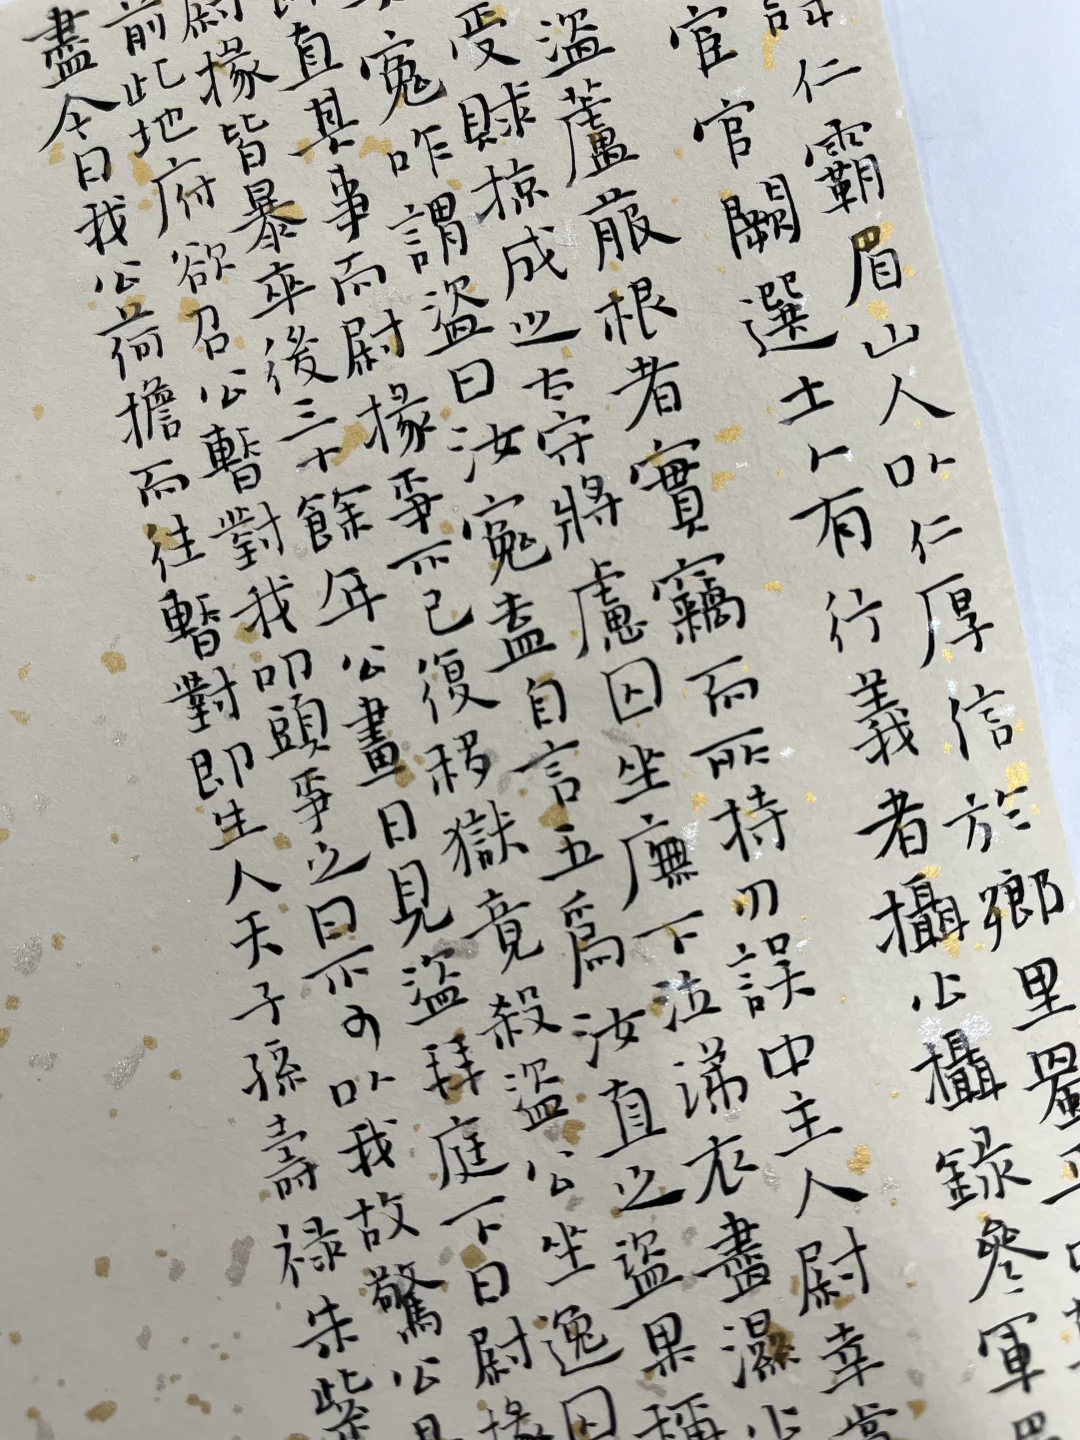 諱仁霸眉山人以仁厚信於鄉里蜀平中
宦官闕選土人有行義者攝公攝錄參軍眉
盜蘆菔根者實竊而所持刃誤中主人尉幸賞
受賕掠成之太守將慮囚坐廡下泣涕衣盡濕公
冤咋謂盜曰汝冤盍自言五爲汝直之盜果稱
即直其事而尉掾爭不已復移獄竟殺盜公坐逸囚
尉掾皆暴卒後三十餘年公晝日見盜拜庭下曰尉掾
前此地府欲召公暫對我叩頭爭之曰不可以我故驚公是
盡今日我公荷擔而往暫對即生人天子孫壽祿朱紫